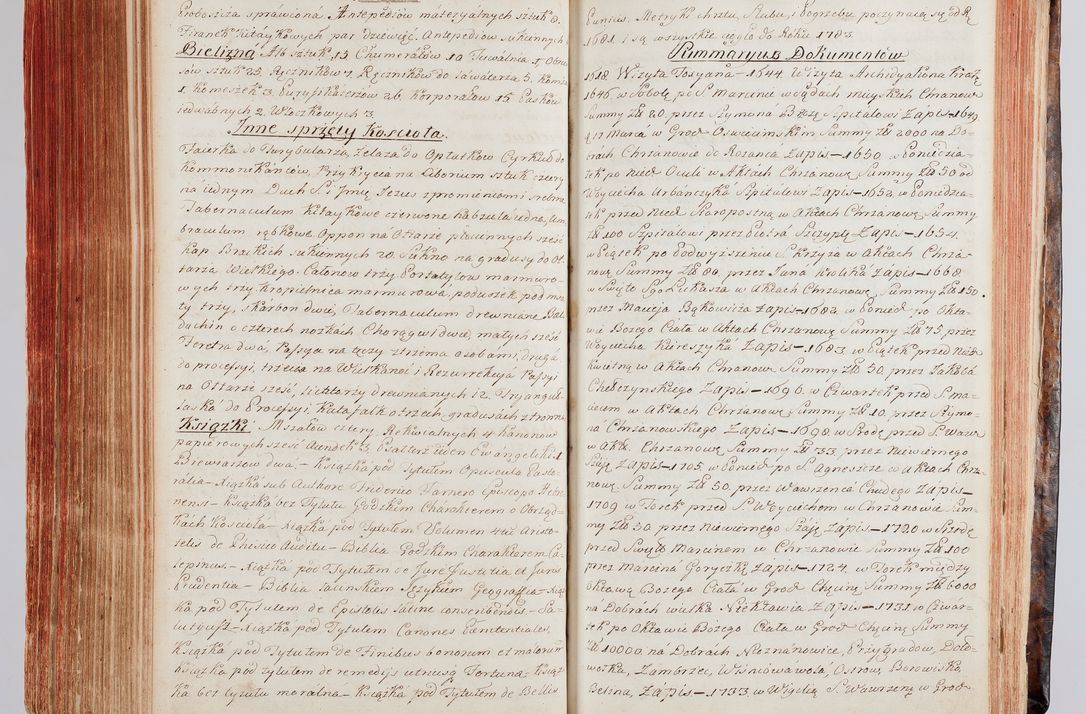 Proboszcza sprawiona Antepediow materyalnych sztuk 8.
Firanek Kitaykowych par dziewięć. Antepediow sukiennych
Bielizna. Alb sztuk 15 Chumerałow 10 Tuwalnia 1, Obru-
sow sztuk 25, Ręcznikow 7, Ręcznikow do Lawaterza 5. Komża
1. Komeszek 3. Puryfikaterzow 26. Korporałow 15 Paskow
iedwabnych 2. Włoczkowych 3.
Inne sprzęty Kościoła.
Faierka do Turybularza, żelaza do Opłatkow Cyrkiel do
Kommonikantow, Przykrycia na Ciborium sztuk cztery
na iednym Duch S. i Jmię Jezus z promieniami srebrne
Tabernaculum kitaykowe czerwone kabzula iedna, Um-
braculum rąbkowe. Oppon na Ołtarze płociennych sześć
Kap Brackich sukiennych 20. Sukno na gradusy do Oł-
tarza Wielkiego. Całonow trzy. Portatylow marmuro-
wych trzy, kropielnica marmurowa, poduszek pod msza-
ły trzy, skarbon dwa, Tabernaculum drewniane Bal-
dachin o czterech nozkach Chorągwi dwie, małych sześć
Feretra dwa, Passyja na tęczy z trzema osobami, druga
do processyi, trzecia na Wielkanoc i Rezurrekcya Passyi
na Ołtarze sześć, Lichtarzy drewnianych 12. Tryangul
laska do Processyi Katafalk o trzech gradusach z trunną
Książki. Mszałow cztery Rekwialnych 4 Kanonow
papierowych sześć Aundek 3, Psałterz ieden Ewangeliczki
Brewiarzow dwa, – Książka pod Tytułem Opuscula Pasto-
ralia – Książka sub Authore Friderico Fornero Episcopo Hebro-
nensi – Książka bez Tytułu Gockim Charakterem o Obrząd-
kach Kościoła – książka pod Tytułem Volumen 4tui Aristo-
telis de Phisico Auditu – Biblia Godzkim Charakterem Ca-
lepinus – Książka pod Tytułem de Jure Justitia et Juris
Prudentia – Biblia Łacińskim Językiem Geografia – Książ-
ka pod Tytułem de Epistolis Latine conscribendis – Sa-
lustyusz – Książka pod Tytułem Canones Penitentiales,
Książka pod Tytułem de Finibus bonorum et malorum
Książka pod tytułem de remediis utriusq Fortuna – Książ-
ka bez tytułu moralna – Książka pod Tytułem de Bellis
Punius. Metryk chrztu, Slubu, i Pogrzebu poczynaią się od R
1681. i są wszystkie ciągło do Roku 1783.
Summaryusz Dokumentow
1618 Wizyta Toryana – 1644. Wizyta Archidyakona Krak:
1646. w Sobotę po S. Marcinie w Xięgach mieyskich Chrzanow
Summy Zł 20. przez Szymona Szpitalowi Zapis – 1649
d 17 Marca w Grod Oswiecimskim Summy Zł 2000 na Do-
brach Chrzanowie do Rożańca Zapis – 1650. w Poniedzia-
łek po Nied Oculi w Aktach Chrzanow Summy Zł 50 od
Woyciecha Urbańczyka Szpitalowi Zapis – 1653 w Poniedzia-
łek przed Nied Staropostną w Aktach Chrzanow Summy
Zł 100 Szpitalowi przez Piotra Szczypkę Zapis – 1654.
w Piątek po Podwyższeniu S. Krzyża w Aktach Chrza-
now Summy Zł 80. przez Jana Krolika Zapis – 1668
w Święto Sgo Łukasza w Aktach Chrzanow Summy Zł 150
przez Macieja Bąkowicza Zapis – 1682. w Ponied po Okta-
wie Bożego Ciała w Aktach Chrzanow Summy Zł 75 przez
Woyciecha Kuireszyka Zapis – 1683 w Piątek przed Nied
Kwietną w Aktach Chrzanow Summy Zł 50. przez Jakuba
Chełczynskiego Zapis – 1696. w Czwartek przed S. Ma-
cieiem w Aktach Chrzanow Summy Zł 10 przez Szymo-
na Chrzanowskiego Zapis – 1698 w Srodę przed S. Wawr
w Akt Chrzanow Summy Zł 733 przez Niewiernego
Szaję Zapis – 1705. w Ponied po S. Agnieszce w Aktach Chrza-
now Summy Zł 50. przez Wawrzenca Chudego Zapis –
1709 w Torek przed S. Woyciechem w Chrzanowie Sum-
my Zł 50 przez Niewiernego Szaję Zapis – 1720 w Srzodę
przed Świętą Marcinem w Chrzanowie Summy Zł 100
przez Marcina Goryczkę Zapis – 1724. w Torek między
Oktawą Bożego Ciała w Grod Chęcin Summy Zł 6000
na Dobrach wielka Niekławia Zapis – 1731 w Czwar-
tek po Oktawie Bożego Ciała w Grod Chęcin Summy
Zł 10000 na Dobrach Naznanowice, Przygradow, Dało-
woska, Zambrzec, Wiśniowa wola, Ostrow, Borowiska
Belina, Zapis – 1733 w Wigilią S. Wawrzenca w Grod